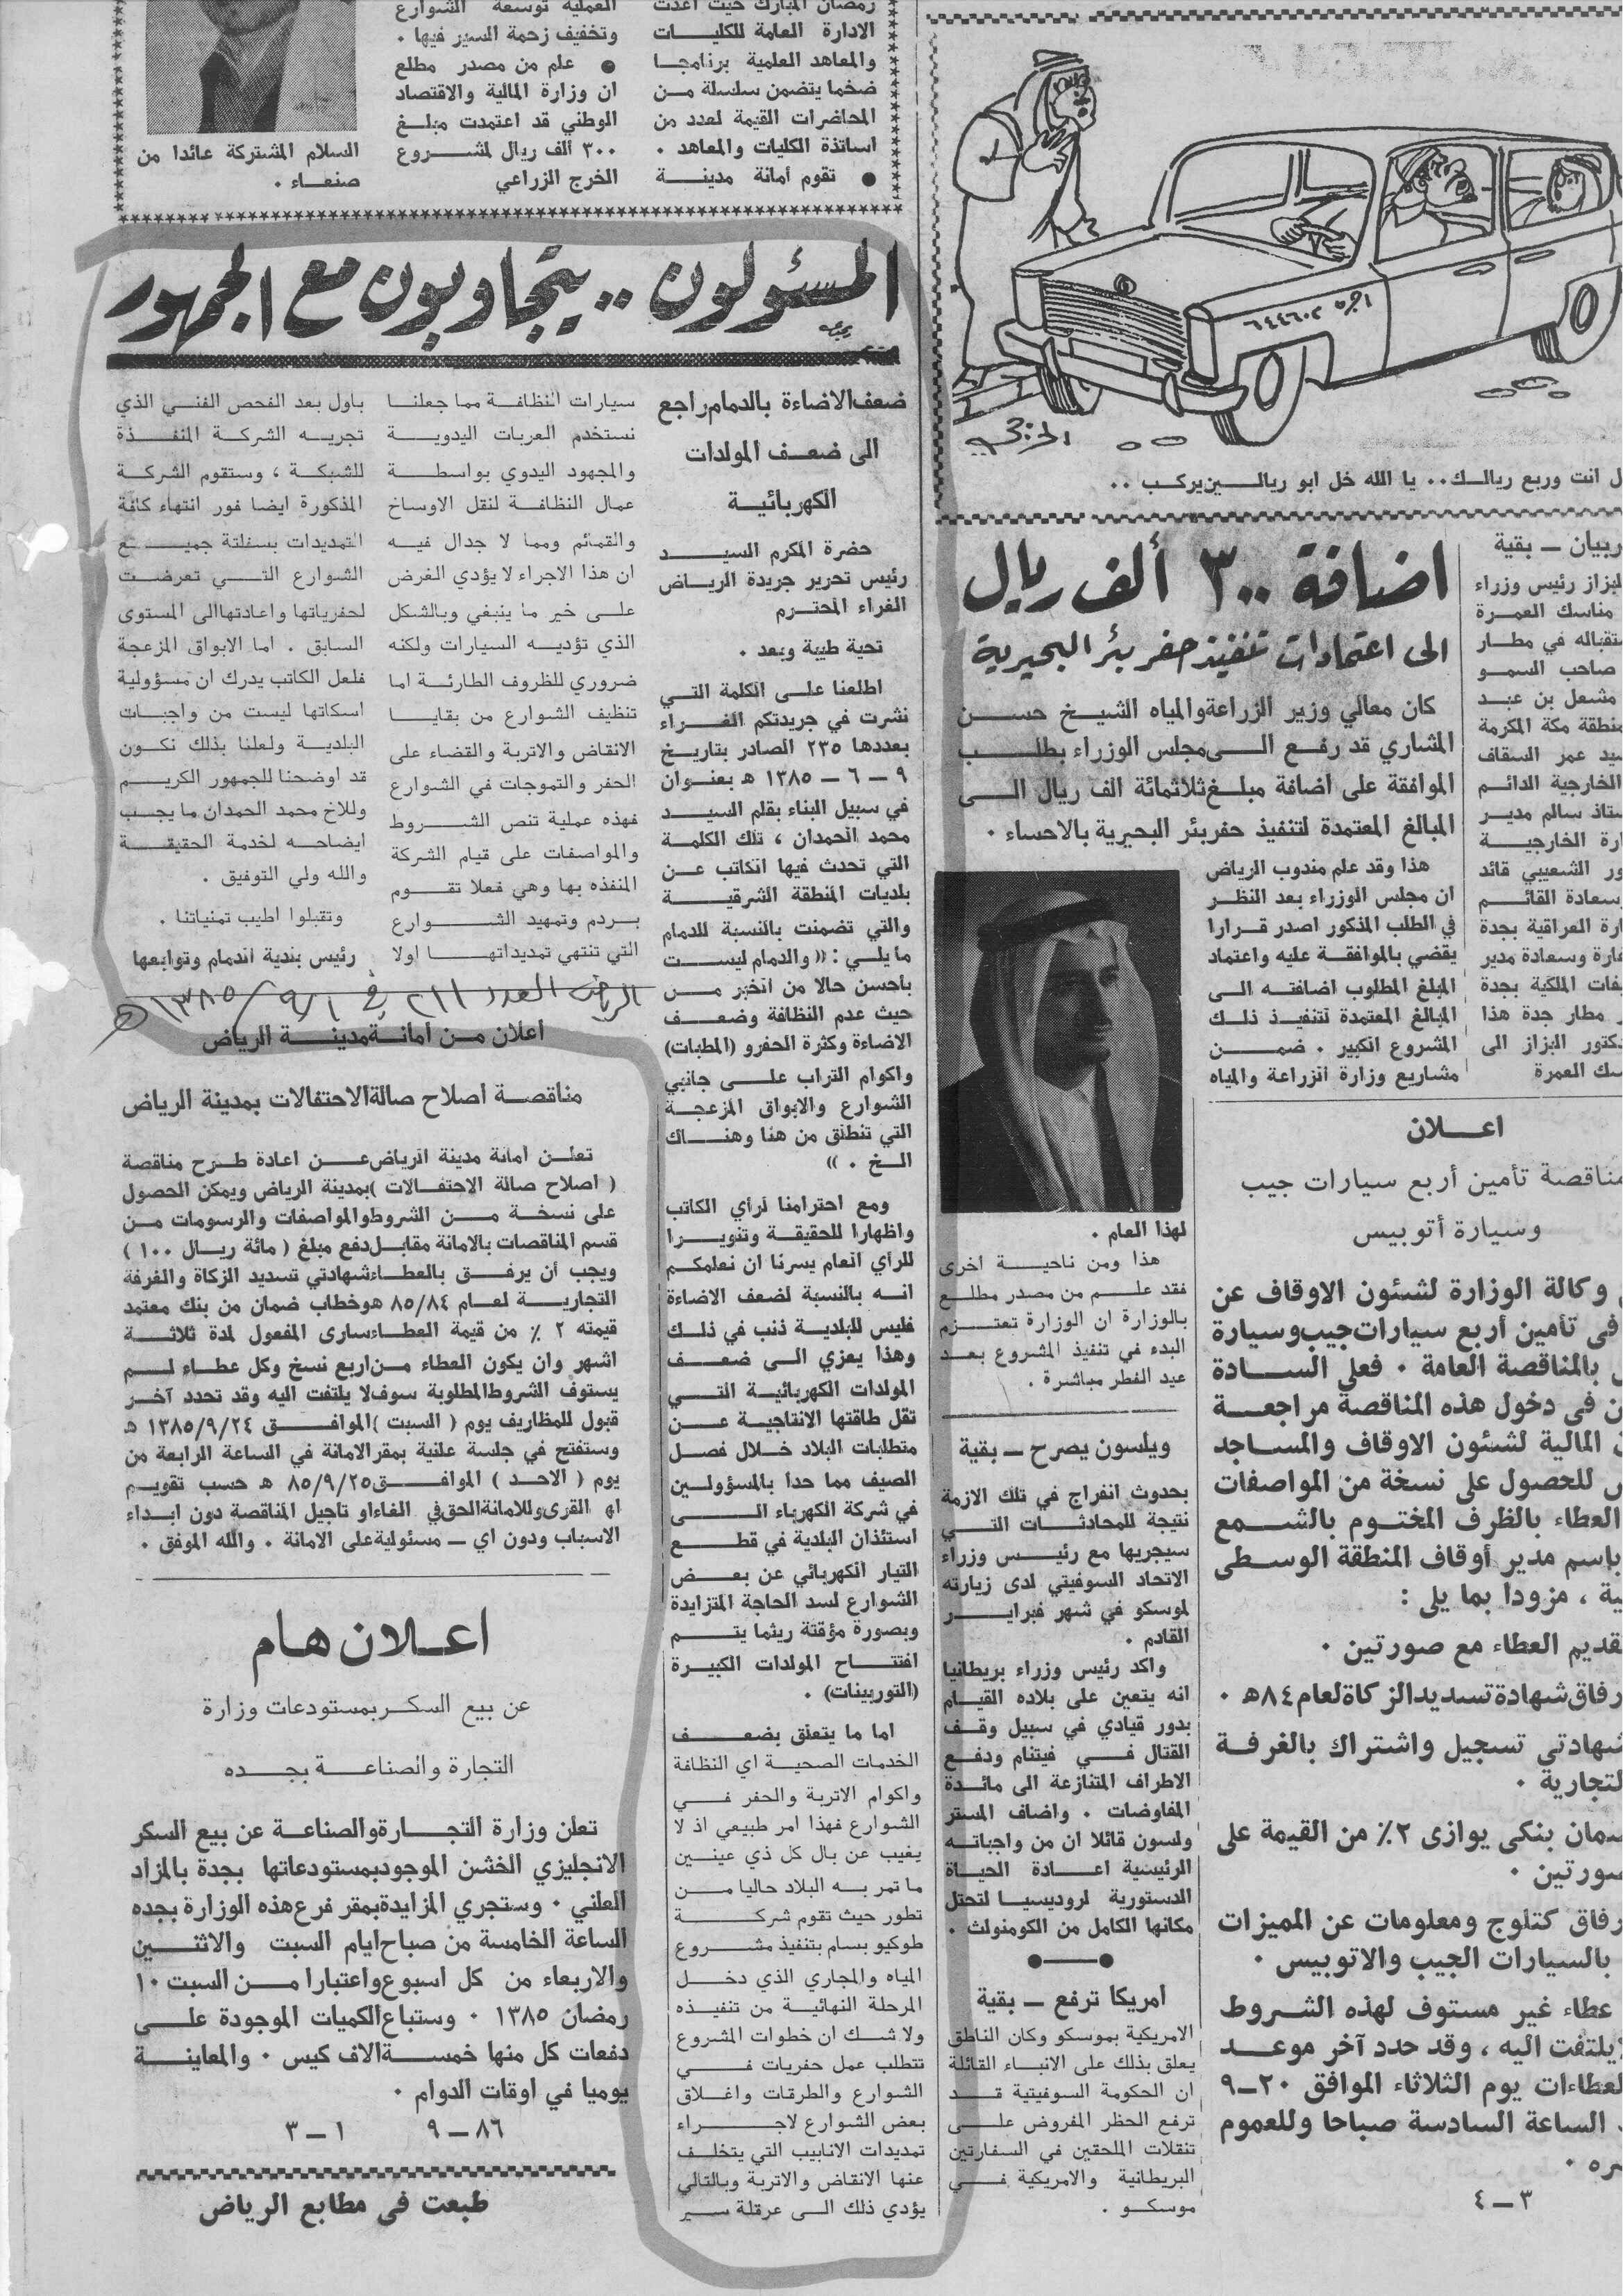 رمضان المبارك حيث أعدت
الادارة العامة للكليات
والمعاهد العلمية برنامجا
ضخما يتضمن سلسلة من
المحاضرات القيمة لعدد من
اساتذة الكليات والمعاهد .
● تقوم أمانة مدينة
العملية توسعة الشوارع
وتخفيف زحمة السير فيها .
● علم من مصدر مطلع
ان وزارة المالية والاقتصاد
الوطني قد اعتمدت مبلغ
٣٠٠ ألف ريال لمشروع
الخرج الزراعي
السلام المشتركة عائدا من
صنعاء .
اجرة ٦٤٤٦٠٢
ل انت وربع ريالك .. يا الله خل ابو ريالين يركب ..
المسئولون .. يتجاوبون مع الجمهور
ضعف الاضاءة بالدمام راجع
الى ضعف المولدات
الكهربائية
حضرة المكرم السيد
رئيس تحرير جريدة الرياض
الغراء المحترم
تحية طيبة وبعد .
اطلعنا على الكلمة التي
نشرت في جريدتكم الغراء
بعددها ٢٣٥ الصادر بتاريخ
٩ – ٦ – ١٣٨٥ ه بعنوان
في سبيل البناء بقلم السيد
محمد الحمدان ، تلك الكلمة
التي تحدث فيها الكاتب عن
بلديات المنطقة الشرقية
والتي تضمنت بالنسبة للدمام
ما يلي : (( والدمام ليست
بأحسن حالا من الخبر من
حيث عدم النظافة وضعف
الاضاءة وكثرة الحفرو (المطبات)
واكوام التراب على جانبي
الشوارع والابواق المزعجة
التي تنطلق من هنا وهناك
الخ . ))
ومع احترامنا لرأي الكاتب
واظهارا للحقيقة وتنويرا
للرأي العام يسرنا ان نعلمكم
انه بالنسبة لضعف الاضاءة
فليس للبلدية ذنب في ذلك
وهذا يعزي الى ضعف
المولدات الكهربائية التي
تقل طاقتها الانتاجية عن
متطلبات البلاد خلال فصل
الصيف مما حدا بالمسؤولين
في شركة الكهرباء الى
استئذان البلدية في قطع
التيار الكهربائي عن بعض
الشوارع لسد الحاجة المتزايدة
وبصورة مؤقتة ريثما يتم
افتتاح المولدات الكبيرة
(التوربينات) .
اما ما يتعلق بضعف
الخدمات الصحية اي النظافة
واكوام الاتربة والحفر في
الشوارع فهذا امر طبيعي اذ لا
يغيب عن بال كل ذي عينين
ما تمر به البلاد حاليا من
تطور حيث تقوم شركة
طوكيو بسام بتنفيذ مشروع
المياه والمجاري الذي دخل
المرحلة النهائية من تنفيذه
ولا شك ان خطوات المشروع
تتطلب عمل حفريات في
الشوارع والطرقات واغلاق
بعض الشوارع لاجراء
تمديدات الانابيب التي يتخلف
عنها الانقاض والاتربة وبالتالي
يؤدي ذلك الى عرقلة سير
سيارات النظافة مما جعلنا
نستخدم العربات اليدوية
والمجهود اليدوي بواسطة
عمال النظافة لنقل الاوساخ
والقمائم ومما لا جدال فيه
ان هذا الاجراء لا يؤدي الغرض
على خير ما ينبغي وبالشكل
الذي تؤديه السيارات ولكنه
ضروري للظروف الطارئة اما
تنظيف الشوارع من بقايا
الانقاض والاتربة والقضاء على
الحفر والتموجات في الشوارع
فهذه عملية تنص الشروط
والمواصفات على قيام الشركة
المنفذه بها وهي فعلا تقوم
بردم وتمهيد الشوارع
التي تنتهي تمديداتها اولا
باول بعد الفحص الفني الذي
تجريه الشركة المنفذة
للشبكة ، وستقوم الشركة
المذكورة ايضا فور انتهاء كافة
التمديدات بسفلتة جميع
الشوارع التي تعرضت
لحفرياتها واعادتها الى المستوى
السابق . اما الابواق المزعجة
فلعل الكاتب يدرك ان مسؤولية
اسكاتها ليست من واجبات
البلدية ولعلنا بذلك نكون
قد اوضحنا للجمهور الكريم
وللاخ محمد الحمدان ما يجب
ايضاحه لخدمة الحقيقة
والله ولي التوفيق .
وتقبلوا اطيب تمنياتنا .
رئيس بلدية الدمام وتوابعها
الرياض العدد ٢١١ في ٩/١/ ١٣٨٥ ه
اعلان من امانة مدينة الرياض
مناقصة اصلاح صالة الاحتفالات بمدينة الرياض
تعلن امانة مدينة الرياض عن اعادة طرح مناقصة
( اصلاح صالة الاحتفالات ) بمدينة الرياض ويمكن الحصول
على نسخة من الشروط والمواصفات والرسومات من
قسم المناقصات بالامانة مقابل دفع مبلغ ( مائة ريال ١٠٠ )
ويجب أن يرفق بالعطاء شهادتي تسديد الزكاة والغرفة
التجارية لعام ٨٥/٨٤ ه وخطاب ضمان من بنك معتمد
قيمته ٢ ٪ من قيمة العطاء سارى المفعول لمدة ثلاثة
اشهر وان يكون العطاء من اربع نسخ وكل عطاء لم
يستوف الشروط المطلوبة سوف لا يلتفت اليه وقد تحدد آخر
قبول للمظاريف يوم ( السبت ) الموافق ١٣٨٥/٩/٢٤ ه
وستفتح في جلسة علنية بمقر الامانة في الساعة الرابعة من
يوم ( الاحد ) الموافق ٨٥/٩/٢٥ ه حسب تقويم
ام القرى وللامانة الحق في الغاء او تاجيل المناقصة دون ابداء
الاسباب ودون اي – مسئولية على الامانة . والله الموفق .
اعلان هام
عن بيع السكر بمستودعات وزارة
التجارة والصناعة بجده
تعلن وزارة التجارة والصناعة عن بيع السكر
الانجليزي الخشن الموجود بمستودعاتها بجدة بالمزاد
العلني . وستجري المزايدة بمقر فرع هذه الوزارة بجده
الساعة الخامسة من صباح ايام السبت والاثنين
والاربعاء من كل اسبوع واعتبارا من السبت ١٠
رمضان ١٣٨٥ . وستباع الكميات الموجودة على
دفعات كل منها خمسة الاف كيس . والمعاينة
يوميا في اوقات الدوام .
٨٦ – ٩ ١ – ٣
طبعت في مطابع الرياض
اضافة ٣٠٠ ألف ريال
الى اعتمادات تنفيذ حفر بئر البحيرية
كان معالي وزير الزراعة والمياه الشيخ حسن
المشاري قد رفع الى مجلس الوزراء بطلب
الموافقة على اضافة مبلغ ثلاثمائة الف ريال الى
المبالغ المعتمدة لتنفيذ حفر بئر البحيرية بالاحساء .
هذا وقد علم مندوب الرياض
ان مجلس الوزراء بعد النظر
في الطلب المذكور اصدر قرارا
يقضي بالموافقة عليه واعتماد
المبلغ المطلوب اضافته الى
المبالغ المعتمدة لتنفيذ ذلك
المشروع الكبير . ضمن
مشاريع وزارة الزراعة والمياه
لهذا العام .
هذا ومن ناحية اخرى
فقد علم من مصدر مطلع
بالوزارة ان الوزارة تعتزم
البدء في تنفيذ المشروع بعد
عيد الفطر مباشرة .
ويلسون يصرح – بقية
بحدوث انفراج في تلك الازمة
نتيجة للمحادثات التي
سيجريها مع رئيس وزراء
الاتحاد السوفيتي لدى زيارته
لموسكو في شهر فبراير
القادم .
واكد رئيس وزراء بريطانيا
انه يتعين على بلاده القيام
بدور قيادي في سبيل وقف
القتال في فيتنام ودفع
الاطراف المتنازعة الى مائدة
المفاوضات . واضاف المستر
ولسون قائلا ان من واجباته
الرئيسية اعادة الحياة
الدستورية لروديسيا لتحتل
مكانها الكامل من الكومنولث .
أمريكا ترفع – بقية
الامريكية بموسكو وكان الناطق
يعلق بذلك على الانباء القائلة
ان الحكومة السوفيتية قد
ترفع الحظر المفروض على
تنقلات الملحقين في السفارتين
البريطانية والامريكية في
موسكو .
ربيان – بقية
لبزاز رئيس وزراء
مناسك العمرة
ستقباله في مطار
صاحب السمو
مشعل بن عبد
منطقة مكة المكرمة
سيد عمر السقاف
الخارجية الدائم
ستاذ سالم مدير
ارة الخارجية
ور الشعيبي قائد
سعادة القائم
ارة العراقية بجدة
مارة وسعادة مدير
يفات الملكية بجدة
ر مطار جدة هذا
دكتور البزاز الى
سك العمرة
اعلان
مناقصة تأمين أربع سيارات جيب
وسيارة أتوبيس
وكالة الوزارة لشئون الاوقاف عن
فى تأمين أربع سيارات جيب وسيارة
بالمناقصة العامة . فعلى السادة
ن فى دخول هذه المناقصة مراجعة
المالية لشئون الاوقاف والمساجد
للحصول على نسخة من المواصفات
العطاء بالظرف المختوم بالشمع
باسم مدير أوقاف المنطقة الوسطى
ية ، مزودا بما يلى :
قديم العطاء مع صورتين .
رفاق شهادة تسديد الزكاة لعام ٨٤ه .
شهادتي تسجيل واشتراك بالغرفة
لتجارية .
ضمان بنكى يوازى ٢٪ من القيمة على
صورتين .
رفاق كتلوج ومعلومات عن المميزات
بالسيارات الجيب والاتوبيس .
عطاء غير مستوف لهذه الشروط
يلتفت اليه ، وقد حدد آخر موعد
لعطاءات يوم الثلاثاء الموافق ٢٠–٩
الساعة السادسة صباحا وللعموم
ره .
٣ – ٤